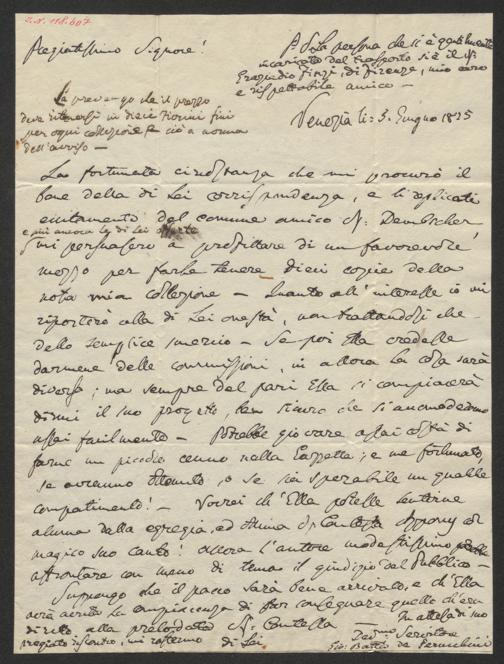 I.N. 118.607
Pregiatissimo Signore!
P.S. La persona che si è gentilmente
incaricata del trasporto si è il Sr.
Graziadio Finzi, di Firenze, mio caro
e rispettabile amico —
La prevengo che il prezzo
deve ritenersi in dieci fiorini fini
per ogni collezione e ciò a norma
dell'avviso —
Venezia li: 3. Giugno 1825
La fortunata circostanza che mi procurò il
bene della di Lei corrispondenza, e li replicati
eccitamenti del comune amico Sr.
e più ancora le di Lei offerte
mi persuasero a profittare di un favorevole
mezzo per farle tenere dieci copie della
nota mia collezione — Quanto all'interesse io mi
riporterò alla di Lei onestà, non trattandosi che
dello semplice smercio — Se poi Ella credesse
darmene delle commissioni, in allora la cosa sarà
diversa; ma sempre del pari Ella si compiacerà
dirmi il suo progetto, ben sicuro che si accomoderemo
assai facilmente — Potrebbe giovare assai costì di
farne un picciolo cenno nella Gazzetta; e me fortunato,
se avremo ottenuto, o se sia sperabile un qualche
compatimento! — Vorrei ch'Ella potesse sentirne
alcuna della egregia, ed Alma Sa. Contessa Appony col
magico suo canto! Allora l'autore modestissimo
affrontare con meno di tema il giudizio del Pubblico —
Suppongo che il pacco sarà bene arrivato, e ch'Ella
avrà avuta la compiacenza di far consegnare quello ch'era
diretto alla prelodata Sa. Contessa
In attesa di suo
pregiato riscontro, mi raffermo di Lei
Devmo Servitore
Gio: Batta da Perucchini